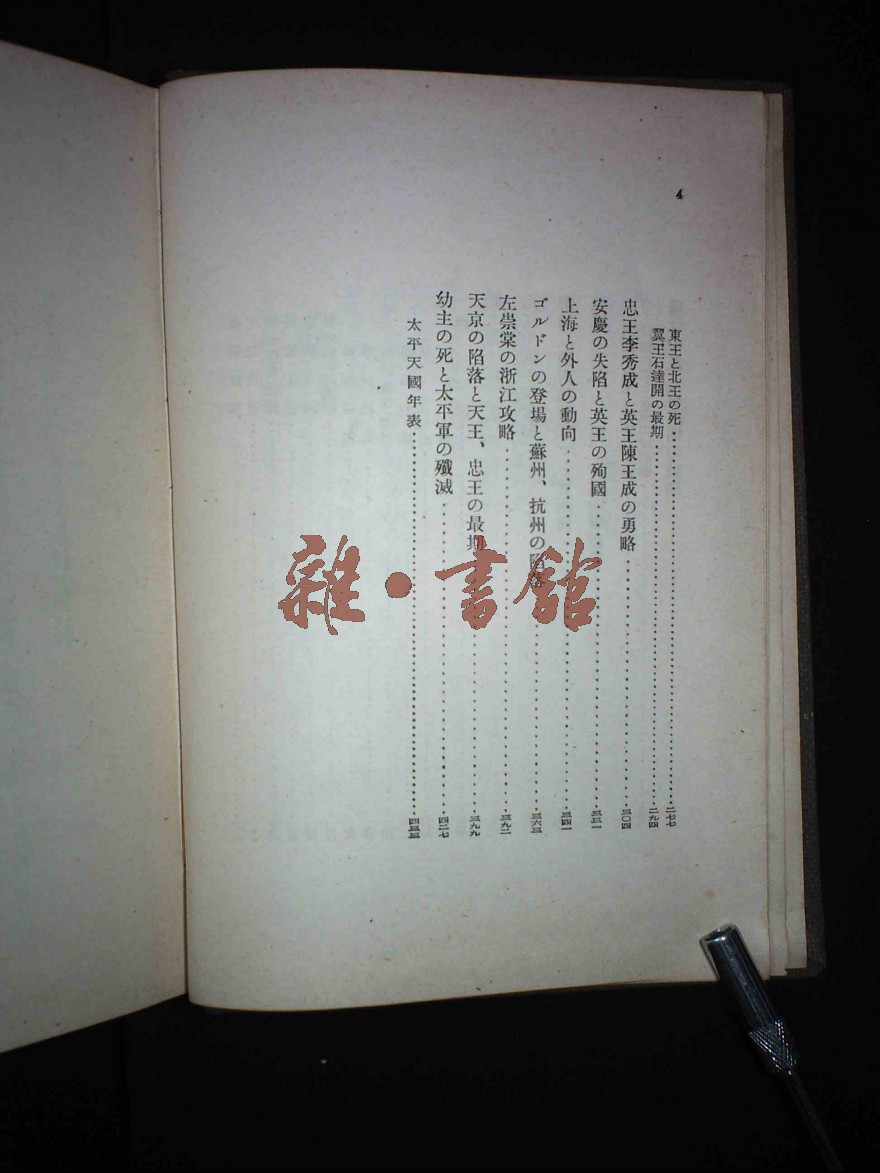 4
東王と北王の死……………………二七七
翼王石達開の最期……………………二九四
忠王李秀成と英王陳王成の勇略……………………三〇四
安慶の失陷と英王の殉國……………………三三一
上海と外人の動向……………………三四一
ゴルドンの登場と蘇州、杭州の陷落……………………三六三
左崇棠の浙江攻略……………………三九二
天京の陷落と天王、忠王の最期……………………三九九
幼主の死と太平軍の殲滅……………………四二七
太平天國年表……………………四三三
雜·書館